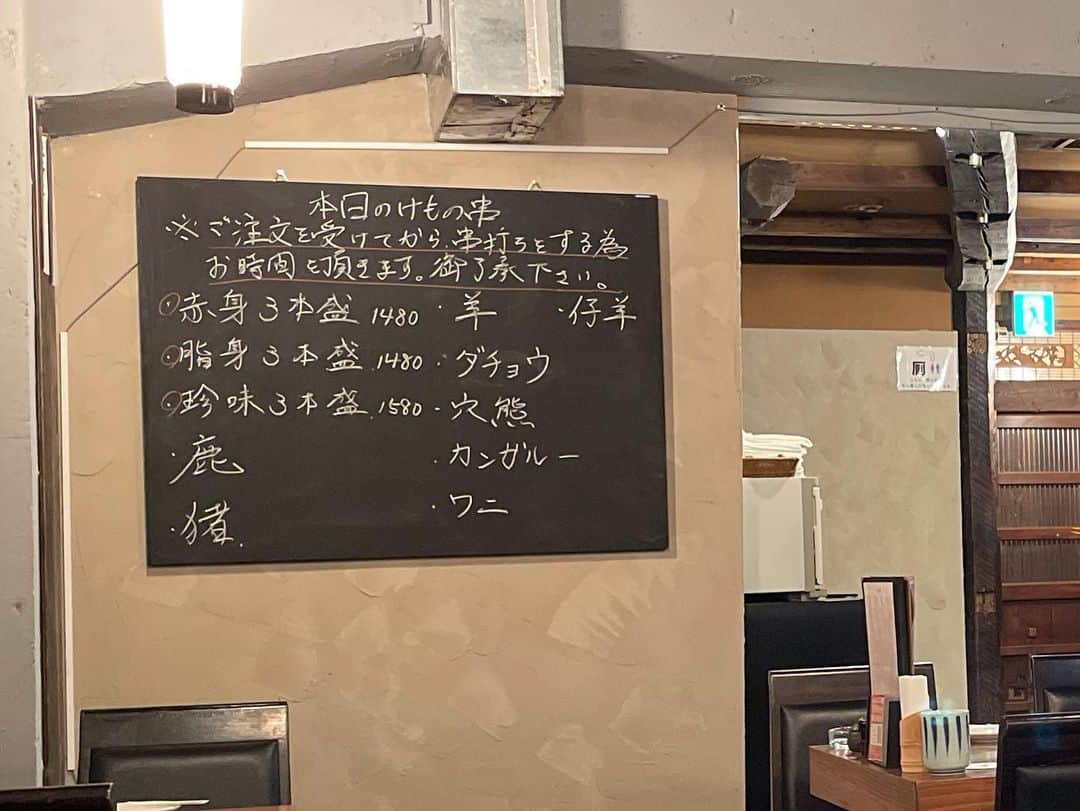 本日のけもの串
※ご注文を受けてから、串打ちをする為
お時間を頂きます。御了承下さい。
◎赤身3本盛 1480
◎脂身3本盛 1480
◎珍味3本盛 1580
・鹿
・猪
・羊 ・仔羊
・ダチョウ
・穴熊
・カンガルー
・ワニ
厠